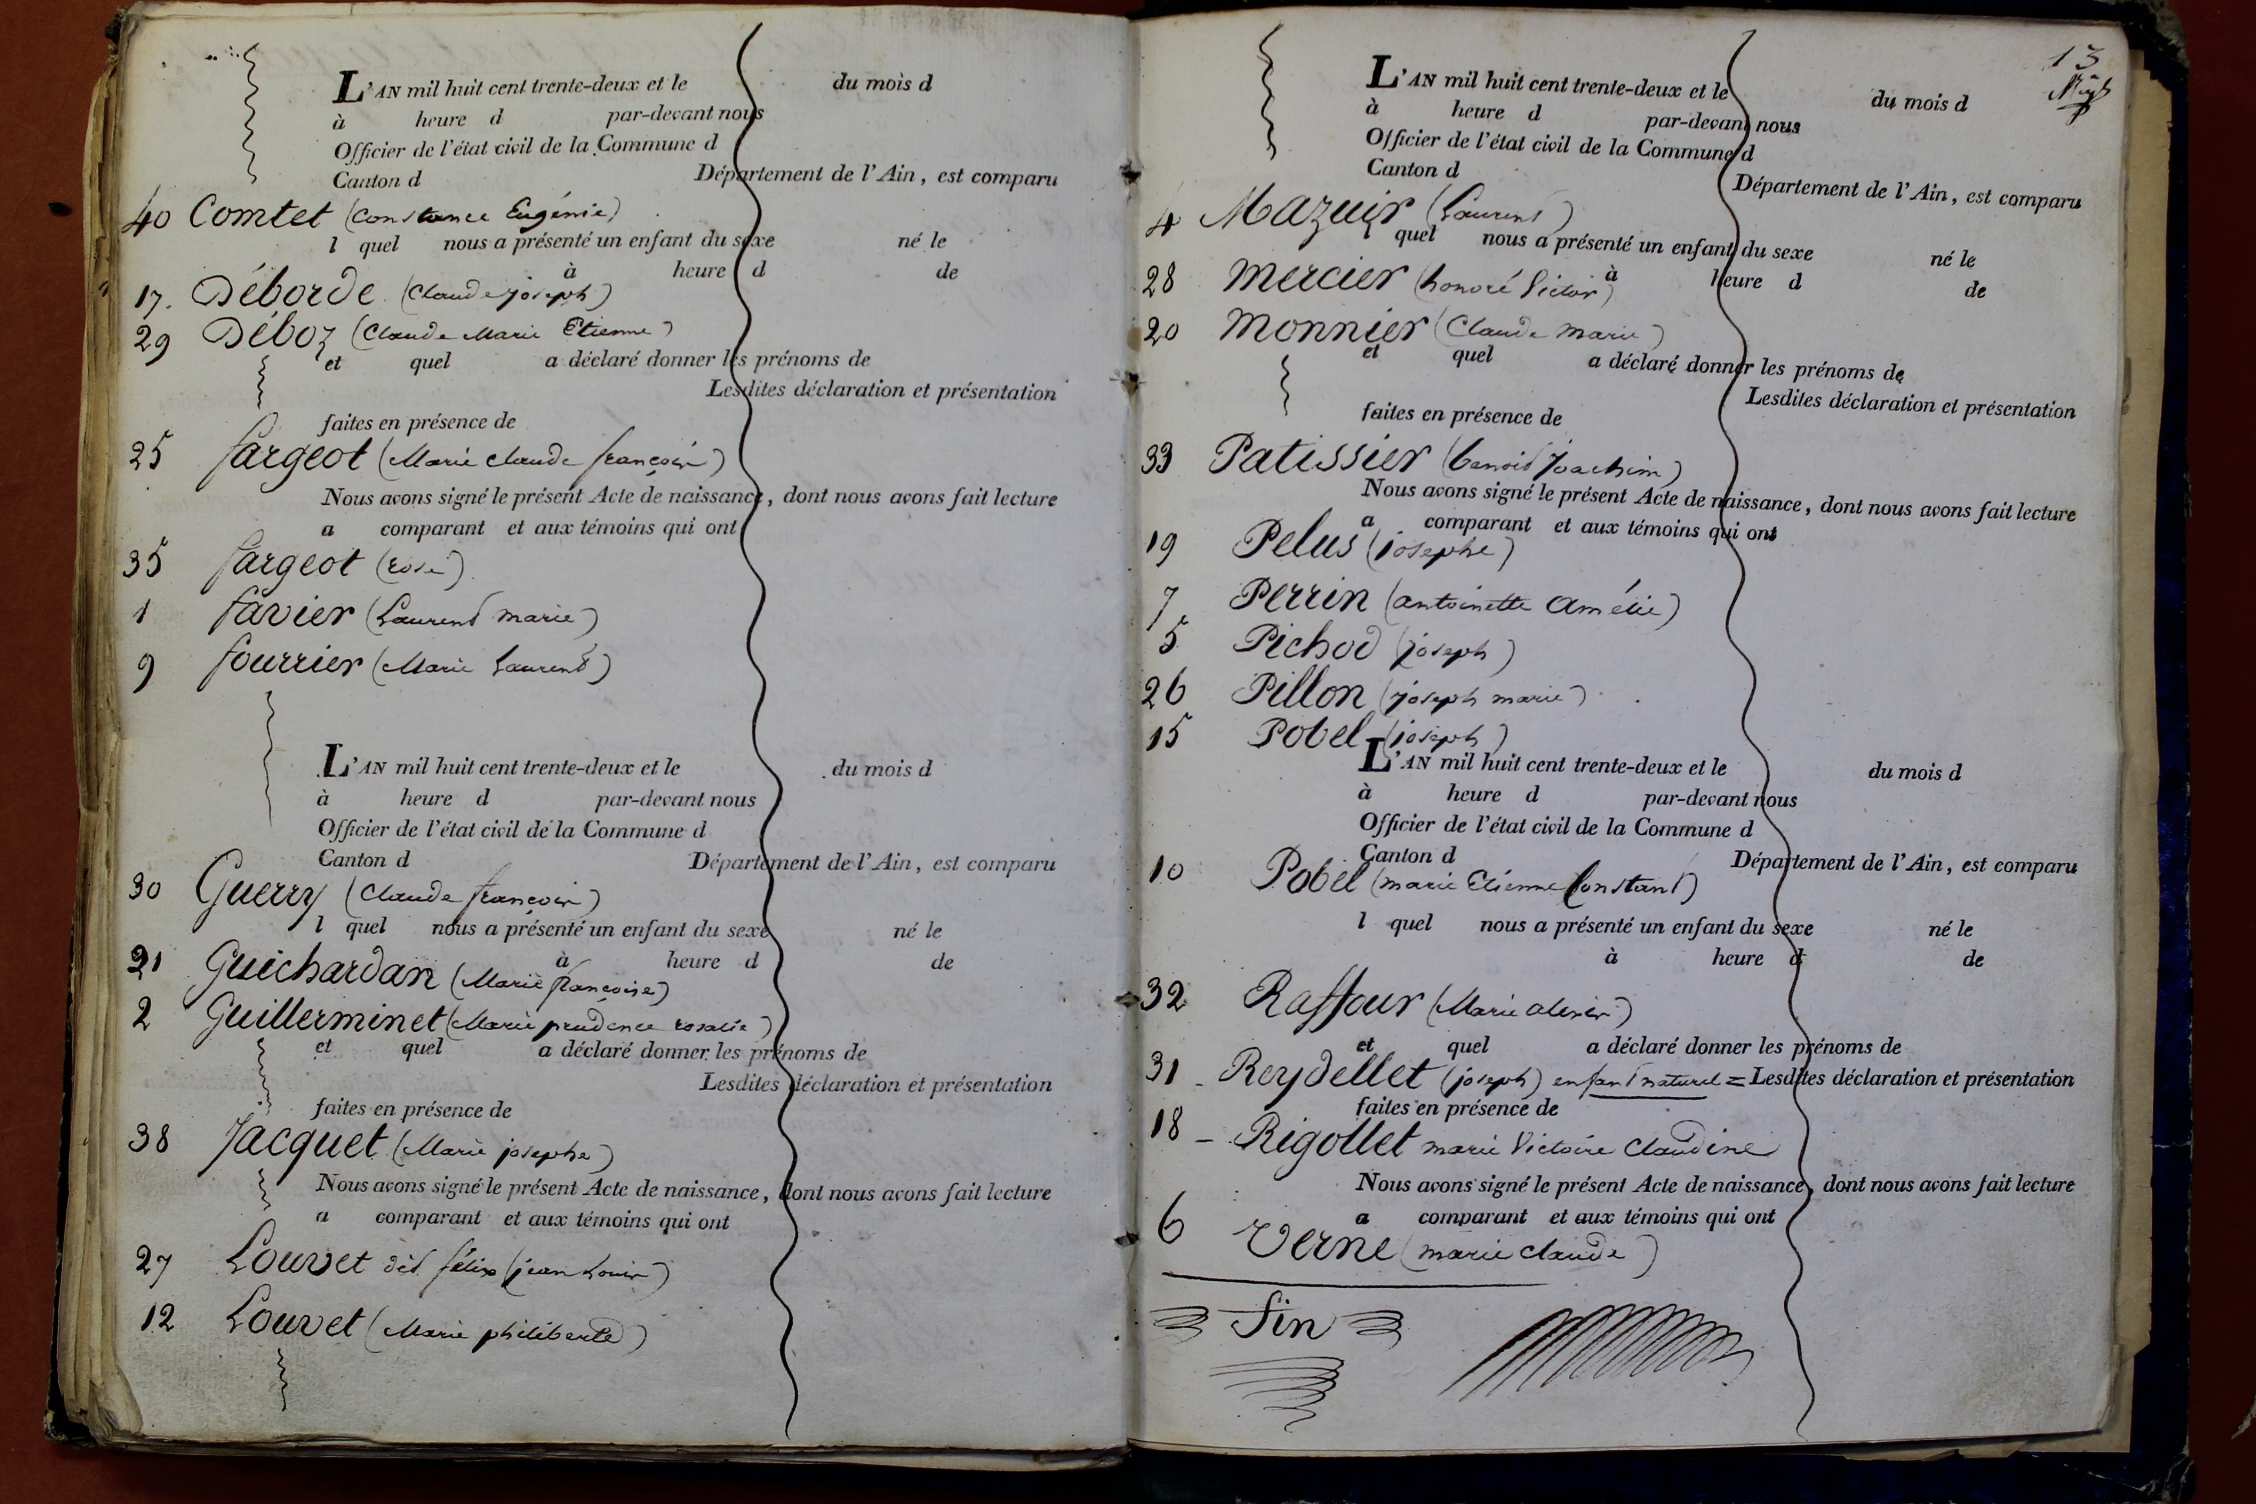 L'AN mil huit cent trente-deux et le du mois d
à heure d par-devant nous
Officier de l'état civil de la Commune d
Canton d Département de l'Ain, est comparu
40 Comtet (Constance Eugénie)
l quel nous a présenté un enfant du sexe né le
à heure d de
17. Déborde (Claude joseph)
29 Déboz (Claude Marie Etienne)
et quel a déclaré donner les prénoms de
Lesdites déclaration et présentation
faites en présence de
25 fargeot (Marie claude françois)
Nous avons signé le présent Acte de naissance, dont nous avons fait lecture
a comparant et aux témoins qui ont
35 fargeot (rose)
1 favier (Laurent marie)
9 fourrier (Marie Laurent)
L'AN mil huit cent trente-deux et le du mois d
à heure d par-devant nous
Officier de l'état civil de la Commune d
Canton d Département de l'Ain, est comparu
30 Guerry (Claude françois)
l quel nous a présenté un enfant du sexe né le
à heure d de
21 Guichardan (Marie françoise)
2 Guillerminet (Marie prudence rosalie)
et quel a déclaré donner les prénoms de
Lesdites déclaration et présentation
faites en présence de
38 Jacquet (Marie josephe)
Nous avons signé le présent Acte de naissance, dont nous avons fait lecture
a comparant et aux témoins qui ont
27 Louvet dit félix (jean Louis)
12 Louvet (Marie philiberte)
13
L'AN mil huit cent trente-deux et le du mois d
à heure d par-devant nous
Officier de l'état civil de la Commune d
Canton d Département de l'Ain, est comparu
4 Mazuir (Laurent)
quel nous a présenté un enfant du sexe né le
à heure d de
28 Mercier (honoré Victor)
20 Monnier (Claude marie)
et quel a déclaré donner les prénoms de
Lesdites déclaration et présentation
faites en présence de
33 Patissier (benoit Joachim)
Nous avons signé le présent Acte de naissance, dont nous avons fait lecture
a comparant et aux témoins qui ont
19 Pelus (josephe)
7 Perrin (antoinette Amélie)
5 Pichod (joseph)
26 Pillon (joseph marie)
15 Pobel (joseph)
L'AN mil huit cent trente-deux et le du mois d
à heure d par-devant nous
Officier de l'état civil de la Commune d
Canton d Département de l'Ain, est comparu
10 Pobel (marie Etienne Constant)
l quel nous a présenté un enfant du sexe né le
à heure d de
32 Raffour (Marie alexis)
et quel a déclaré donner les prénoms de
31 - Reydellet (joseph) enfant naturel = Lesdites déclaration et présentation
faites en présence de
18 - Rigollet marie Victoire Claudine
Nous avons signé le présent Acte de naissance, dont nous avons fait lecture
a comparant et aux témoins qui ont
6 Verne (marie claude)
fin